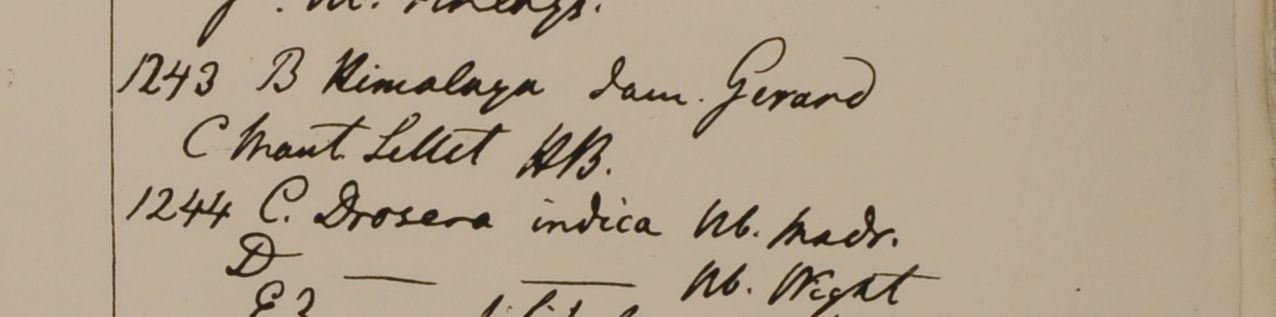 1243 B Himalaya dam. Gerard
C Mont Sillet HB.
1244 C. Drosera indica Hb. Madr.
D — — Hb. Wight